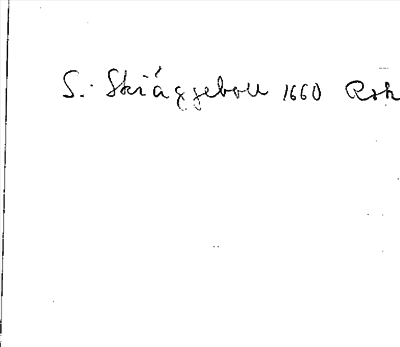 S. Skiäggeboll 1660 Rok